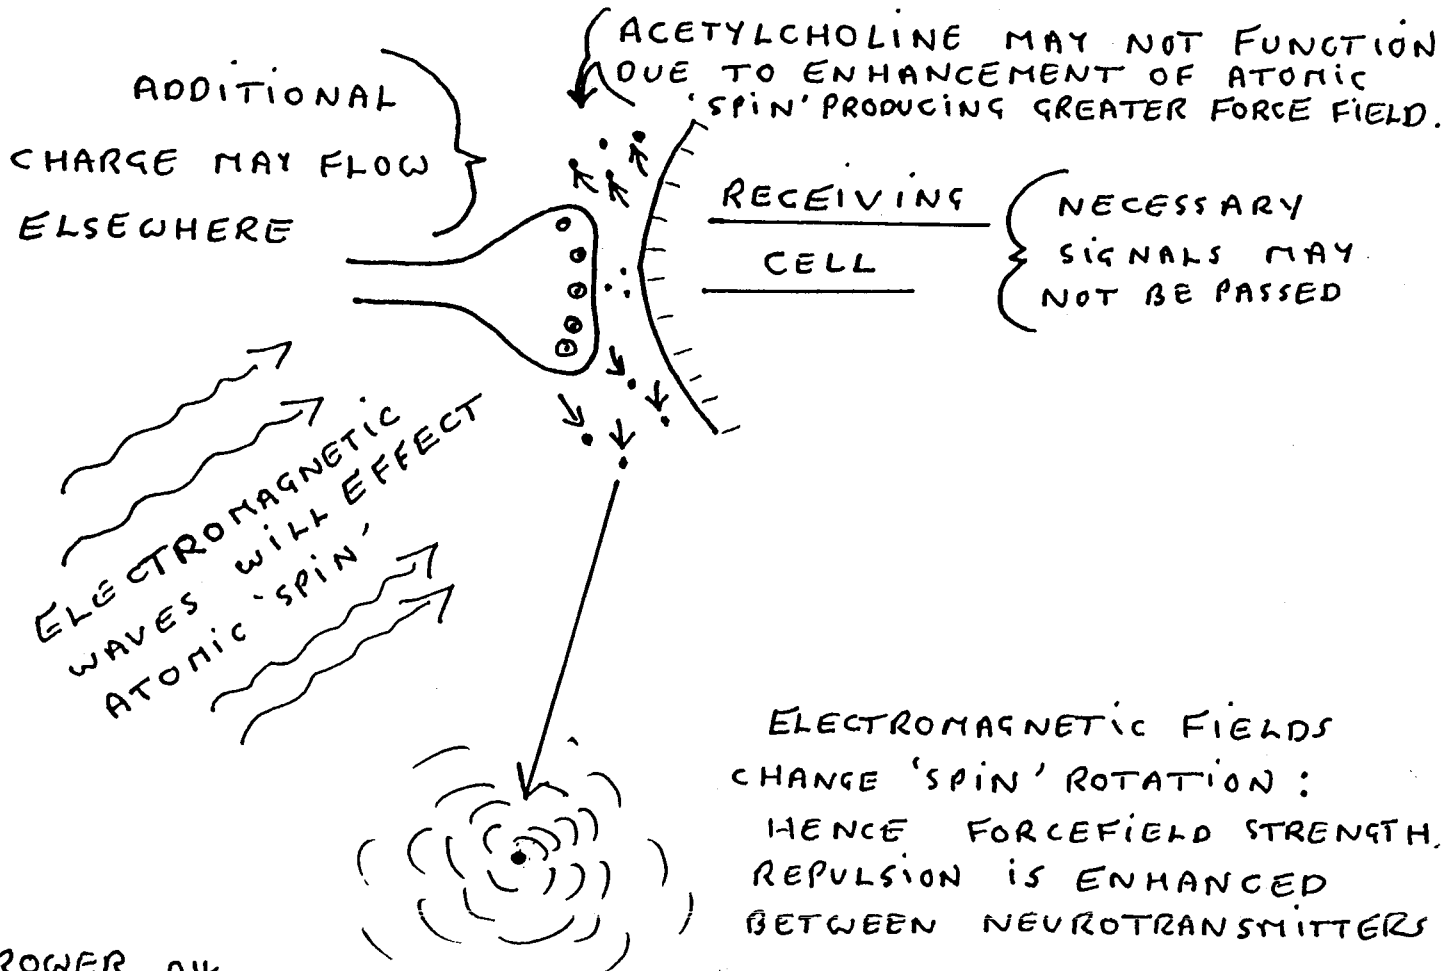 ADDITIONAL
CHARGE MAY FLOW
ELSEWHERE
ACETYLCHOLINE MAY NOT FUNCTION
DUE TO ENHANCEMENT OF ATOMIC
'SPIN' PRODUCING GREATER FORCE FIELD.
RECEIVING
CELL
NECESSARY
SIGNALS MAY
NOT BE PASSED
ELECTROMAGNETIC
WAVES WILL EFFECT
ATOMIC 'SPIN'
ELECTROMAGNETIC FIELDS
CHANGE 'SPIN' ROTATION :
HENCE FORCEFIELD STRENGTH.
REPULSION IS ENHANCED
BETWEEN NEUROTRANSMITTERS